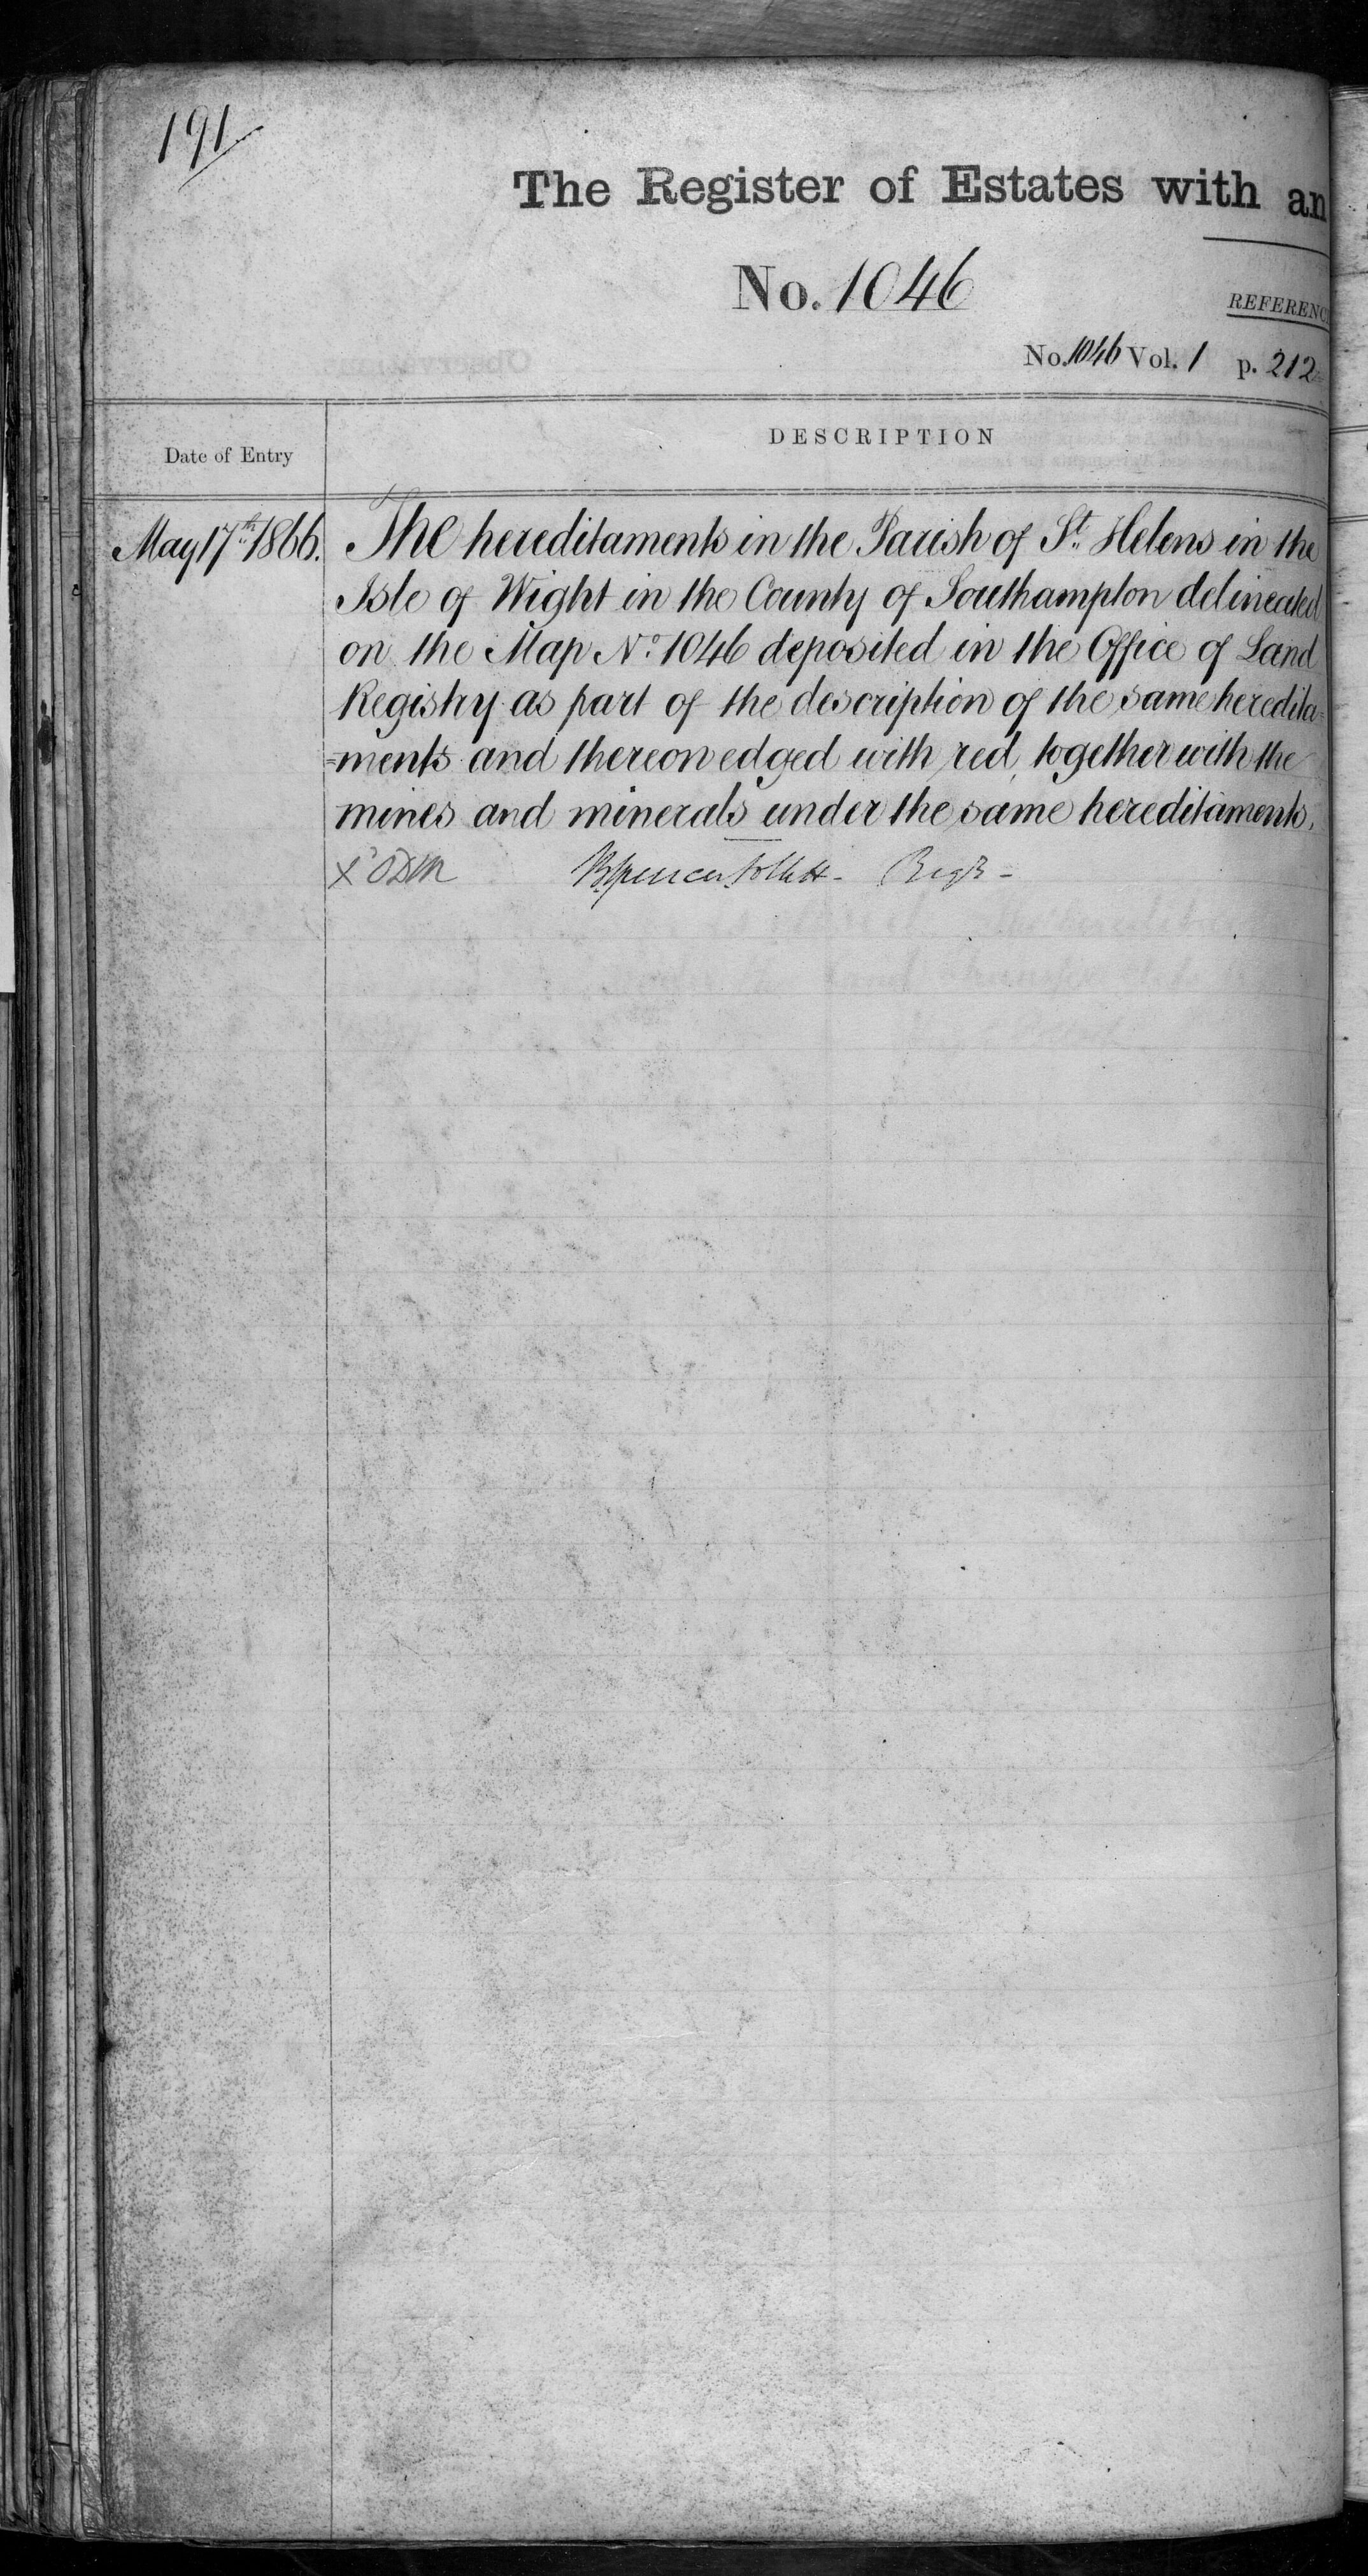 191
The Register of Estates with an
No. 1046
REFERENC
No. 1046 Vol. 1 p. 212
Date of Entry
DESCRIPTION
May 17th 1866. The hereditaments in the Parish of St. Helens in the
Isle of Wight in the County of Southampton delineated
on the Map No. 1046 deposited in the Office of Land
Registry as part of the description of the same heredita=
=ments and thereon edged with red, together with the
mines and minerals under the same hereditaments.
Spencer Follett - Regr -